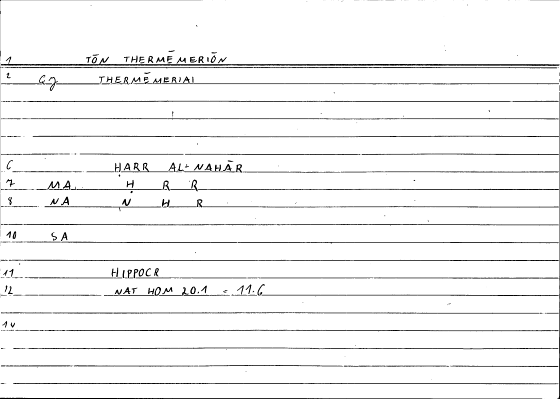 1 TŌN THERMĒMERIŌN
2 Gj THERMĒMERIAI
6 HARR AL-NAHĀR
7 MA Ḥ R R
8 NA N H R
10 SA
11 HIPPOCR
12 NAT HOM 20.1 = 11.6
14